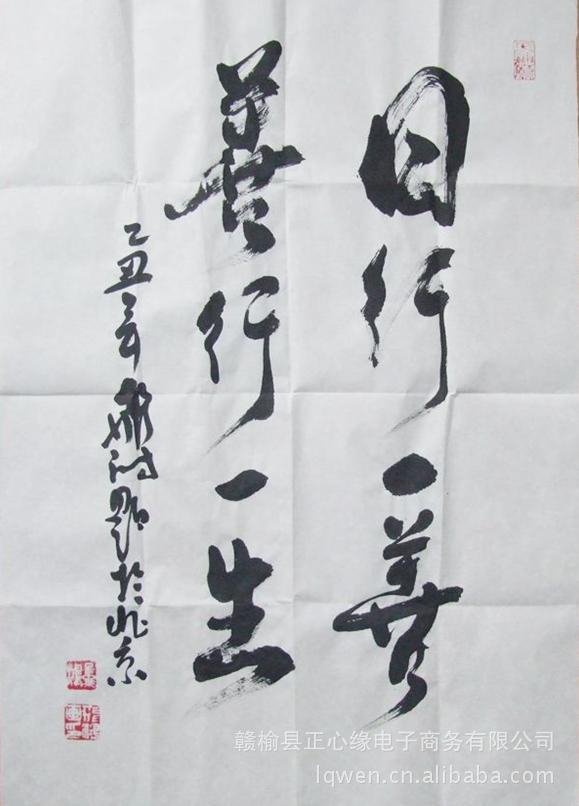 日行一善
善行一生
乙丑年 题于北京
赣榆县正心缘电子商务有限公司
lqwen.cn.alibaba.com